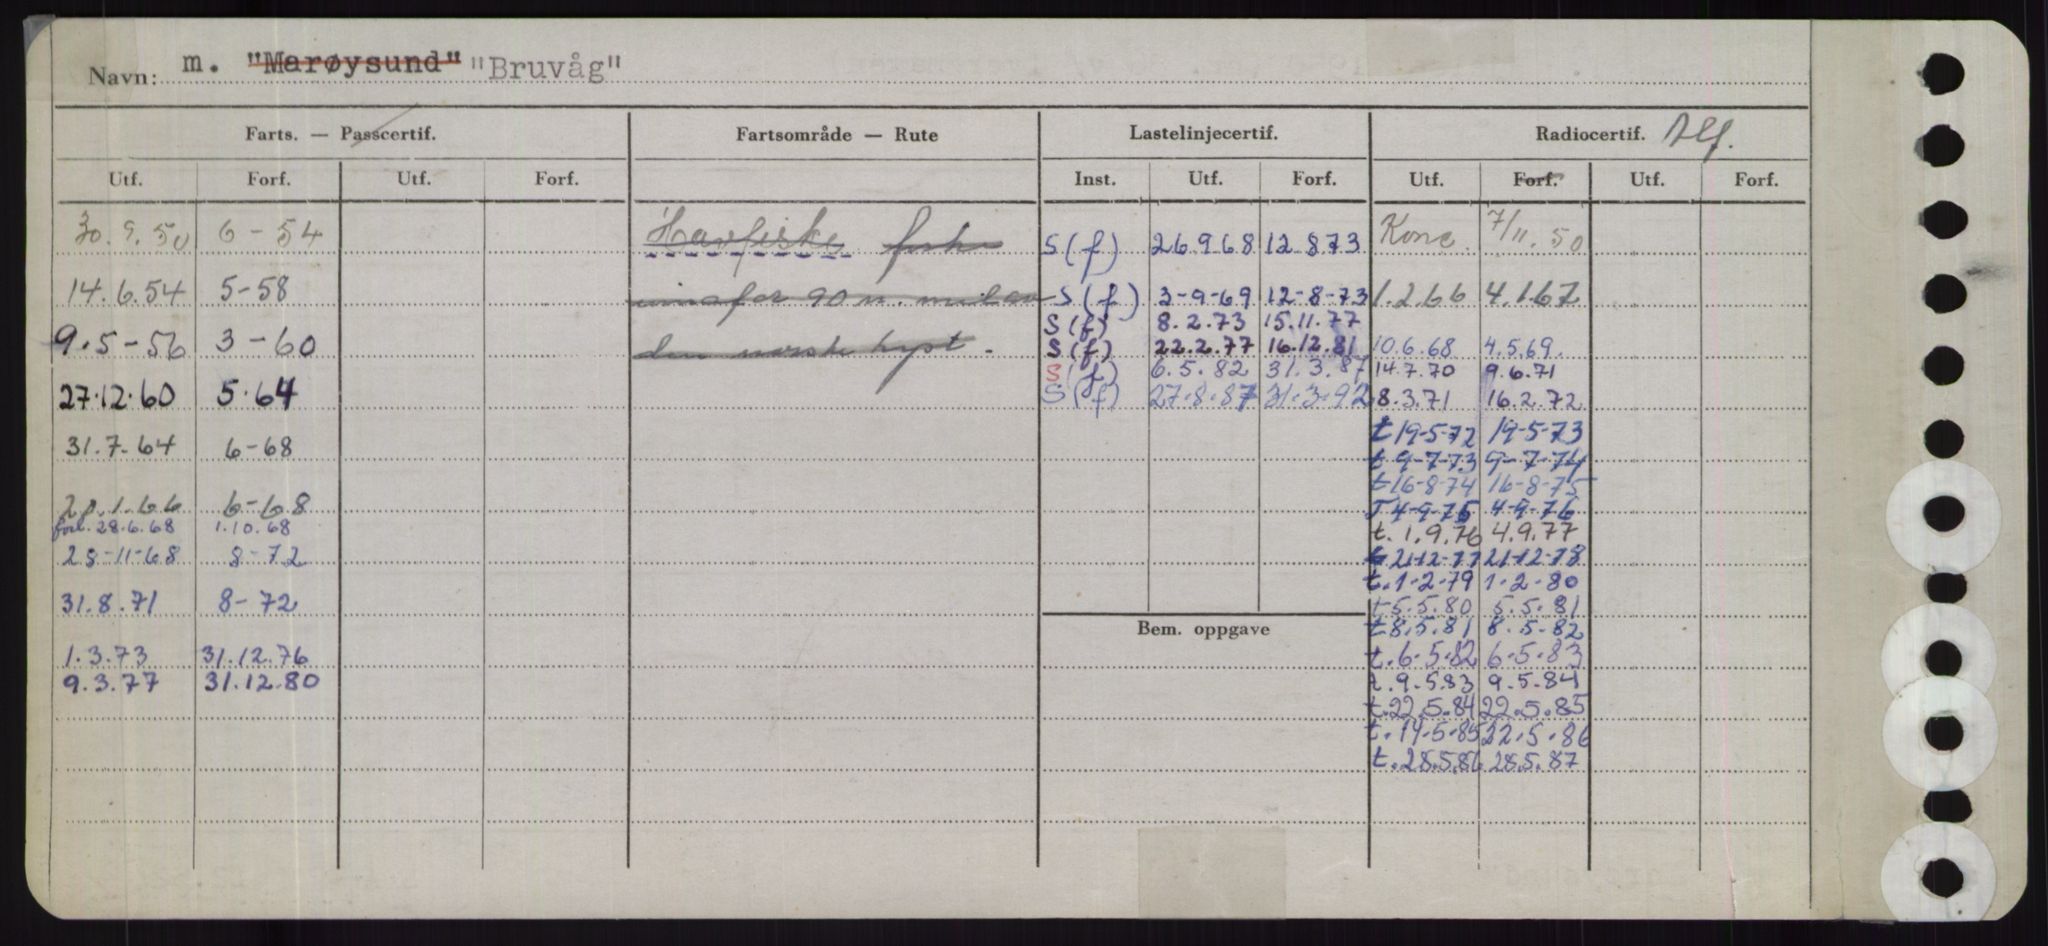 Navn: m. "Marøysund" "Bruvåg"
Farts. — Passcertif. Fartsområde — Rute Lastelinjecertif. Radiocertif. Tlf.
Utf. Forf. Utf. Forf. Inst. Utf. Forf. Utf. Forf. Utf. Forf.
30.9.50 6-54 Havfiske S(f) 26 9 68 12 8 73 Konc. 7/11.50
14.6.54 5-58 innafor 90 n. mil av S(f) 3-9-69 12-8-73 1.2.66 4.1.67
S(f) 8.2.73 15.11.77
9.5-56 3-60 den norske kyst. S(f) 22.2.77 16.12.81 10.6.68 4.5.69.
S(f) 6.5.82 31.3.87 14.7.70 9.6.71
27.12.60 5.64 S(f) 27.8.87 31.3.92 8.3.71 16.2.72
t 19-5-72 19-5-73
31.7.64 6-68 t 9-7-73 9-7-74
t 16-8-74 16-8-75
28.1.66 6-68 T 4-9-75 4-9-76
forl. 28.6.68 1.10.68 t. 1.9.76 4.9.77
28-11-68 8-72 t 21-12-77 21-12-78
t. 1-2-79 1-2-80
31.8.71 8-72 t 5.5.80 5.5.81
Bem. oppgave t 8.5.81 8.5-82
1.3.73 31.12.76 t. 6-5-82 6-5-83
9.3.77 31.12.80 t. 9.5.83 9.5.84
t. 22.5.84 22.5.85
t. 14.5.85 22.5.86
t. 28.5.86 28.5.87